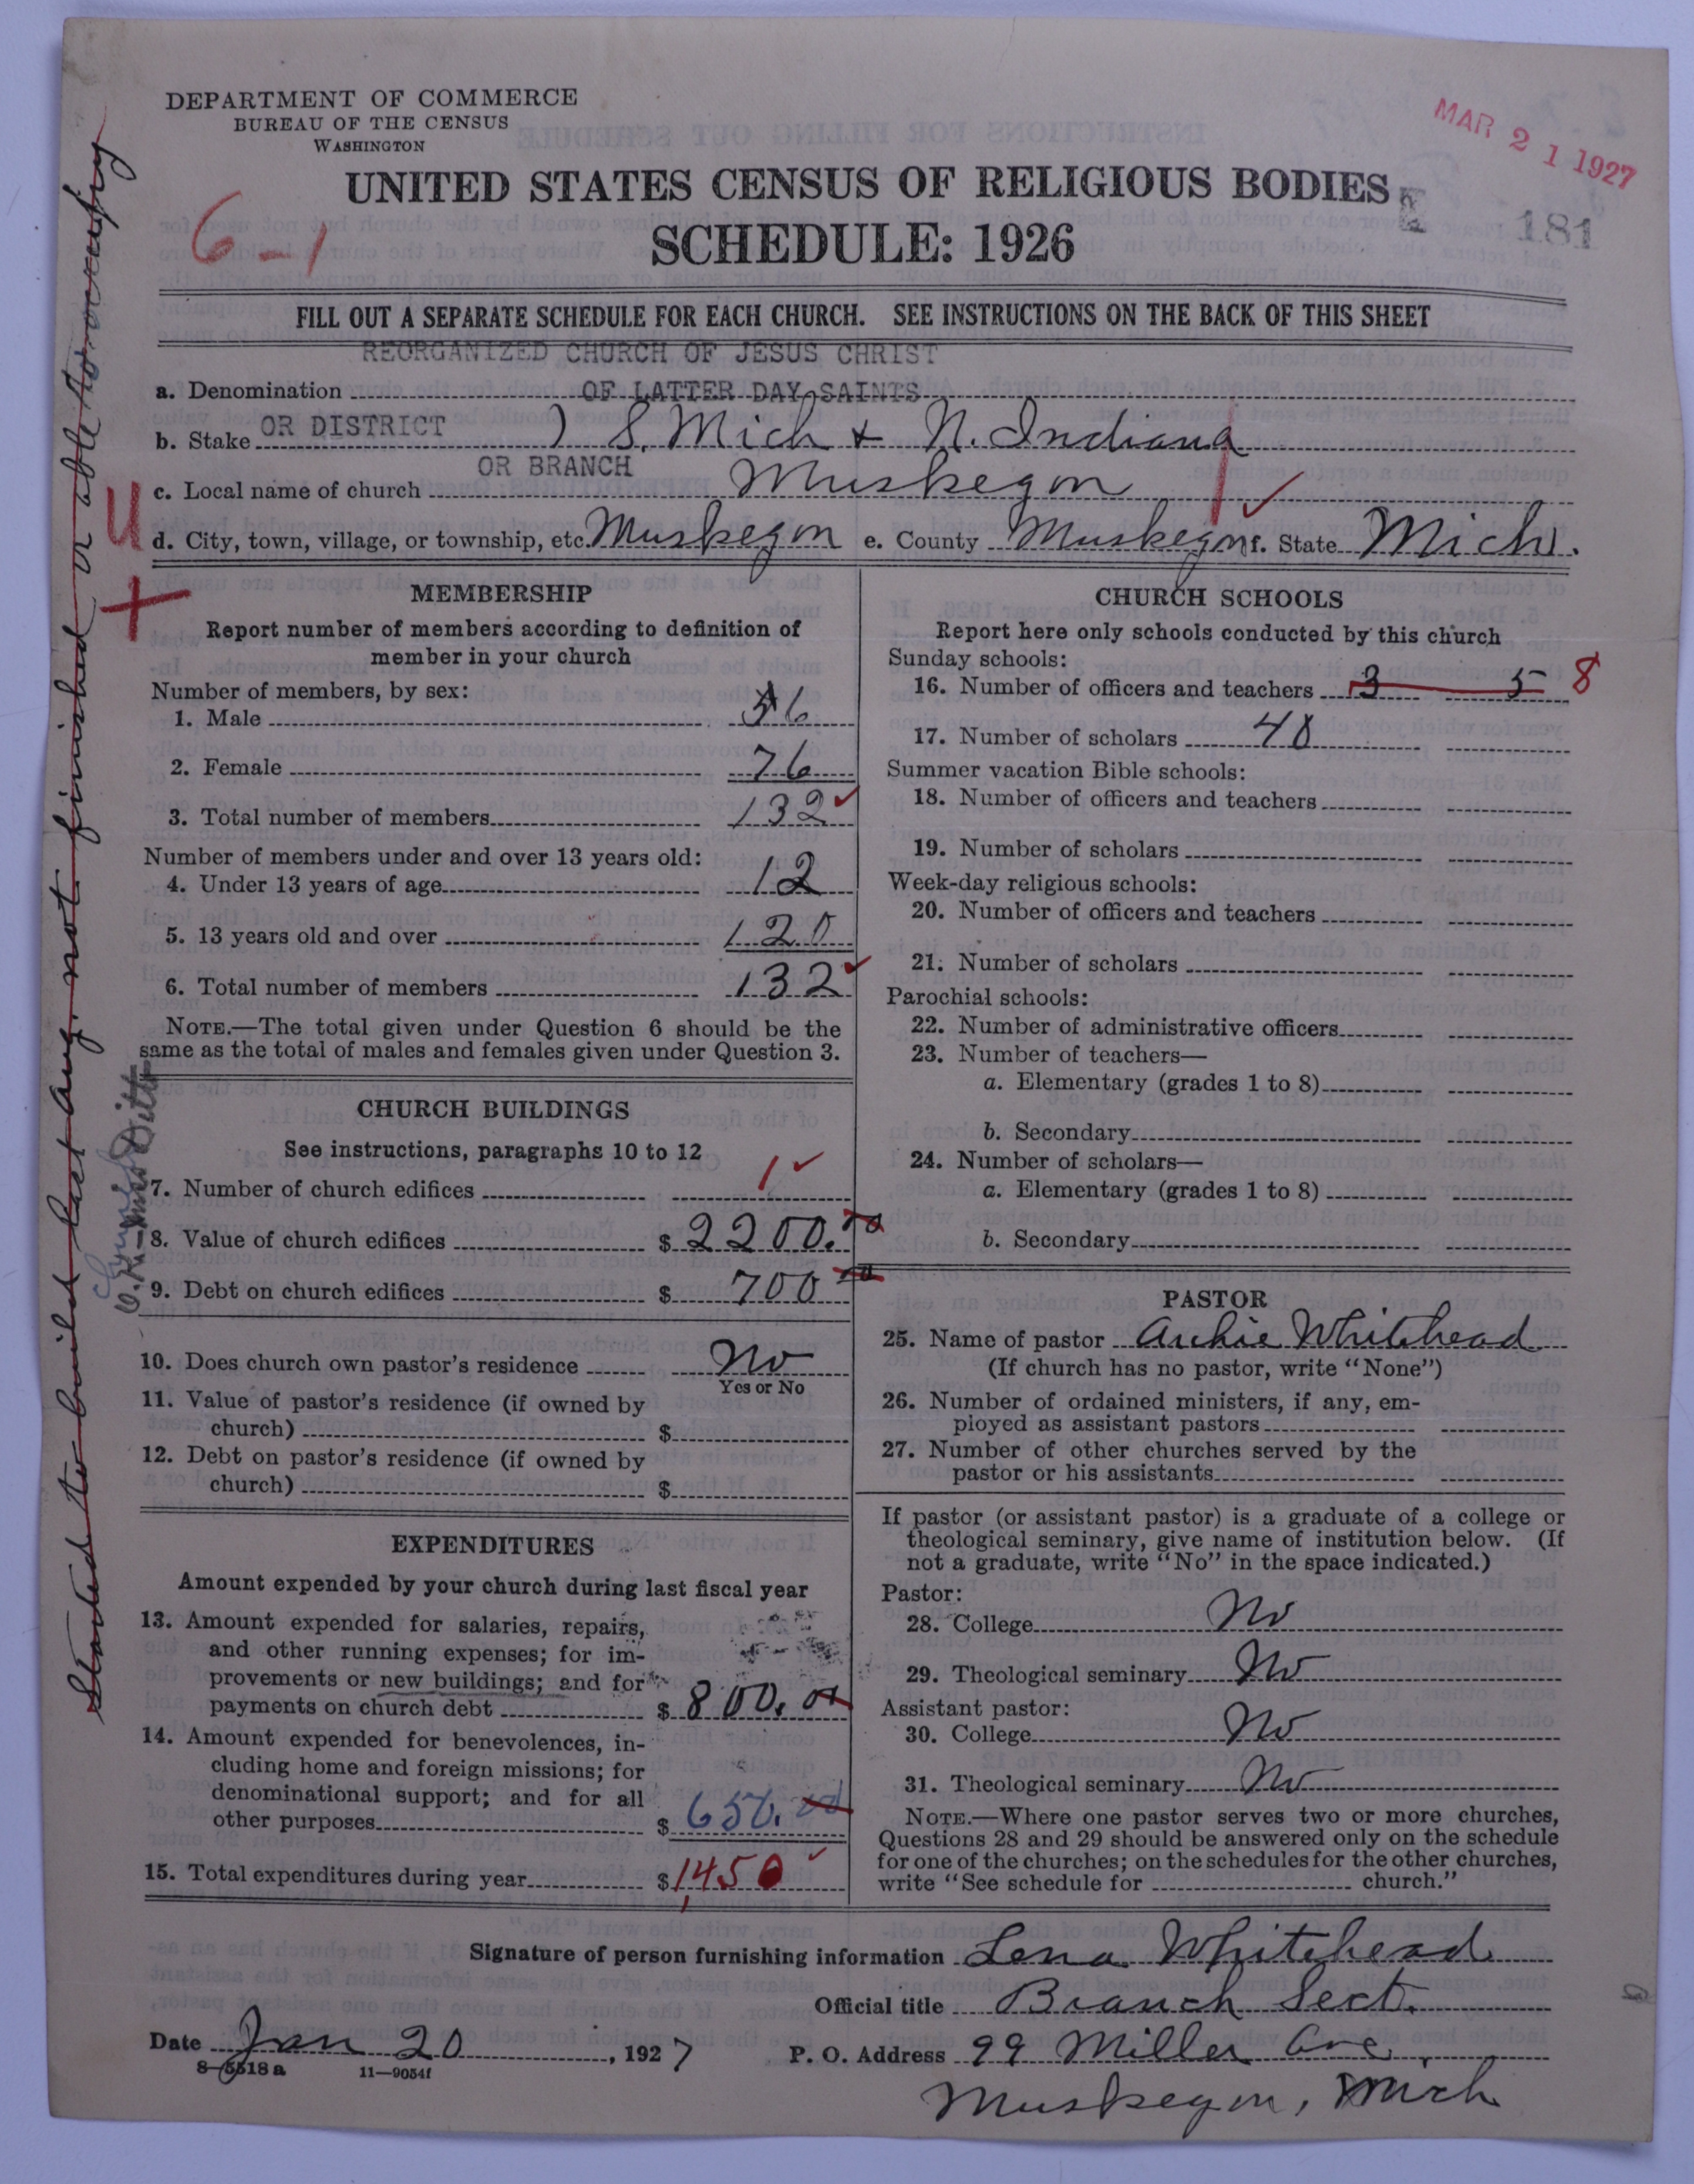 DEPARTMENT OF COMMERCE
BUREAU OF THE CENSUS
WASHINGTON
MAR 21 1927
UNITED STATES CENSUS OF RELIGIOUS BODIES
SCHEDULE: 1926
181
6-1
FILL OUT A SEPARATE SCHEDULE FOR EACH CHURCH. SEE INSTRUCTIONS ON THE BACK OF THIS SHEET
REORGANIZED CHURCH OF JESUS CHRIST
a. Denomination OF LATTER DAY SAINTS
b. Stake OR DISTRICT ) S. Mich & N. Indiana
OR BRANCH
c. Local name of church Muskegon
d. City, town, village, or township, etc. Muskegon e. County Muskegon f. State Mich.
U
+
Started to build last Aug. not finished or able to occupy
MEMBERSHIP
Report number of members according to definition of
member in your church
Number of members, by sex:
1. Male 56
2. Female 76
3. Total number of members 132
Number of members under and over 13 years old:
4. Under 13 years of age 12
5. 13 years old and over 120
6. Total number of members 132
NOTE.—The total given under Question 6 should be the
same as the total of males and females given under Question 3.
CHURCH BUILDINGS
See instructions, paragraphs 10 to 12
7. Number of church edifices 1
8. Value of church edifices $ 2200.00
9. Debt on church edifices $ 700 00
10. Does church own pastor's residence No
Yes or No
11. Value of pastor's residence (if owned by
church) $
12. Debt on pastor's residence (if owned by
church) $
EXPENDITURES
Amount expended by your church during last fiscal year
13. Amount expended for salaries, repairs,
and other running expenses; for im-
provements or new buildings; and for
payments on church debt $ 800.00
14. Amount expended for benevolences, in-
cluding home and foreign missions; for
denominational support; and for all
other purposes $ 650.00
15. Total expenditures during year $ 1450
CHURCH SCHOOLS
Report here only schools conducted by this church
Sunday schools:
16. Number of officers and teachers 3 5 8
17. Number of scholars 48
Summer vacation Bible schools:
18. Number of officers and teachers
19. Number of scholars
Week-day religious schools:
20. Number of officers and teachers
21. Number of scholars
Parochial schools:
22. Number of administrative officers
23. Number of teachers—
a. Elementary (grades 1 to 8)
b. Secondary
24. Number of scholars—
a. Elementary (grades 1 to 8)
b. Secondary
PASTOR
25. Name of pastor Archie Whitehead
(If church has no pastor, write "None")
26. Number of ordained ministers, if any, em-
ployed as assistant pastors
27. Number of other churches served by the
pastor or his assistants
If pastor (or assistant pastor) is a graduate of a college or
theological seminary, give name of institution below. (If
not a graduate, write "No" in the space indicated.)
Pastor:
28. College No
29. Theological seminary No
Assistant pastor:
30. College No
31. Theological seminary No
NOTE.—Where one pastor serves two or more churches,
Questions 28 and 29 should be answered only on the schedule
for one of the churches; on the schedules for the other churches,
write "See schedule for church."
Signature of person furnishing information Lena Whitehead
Official title Branch Sect.
Date Jan 20, 1927 P. O. Address 99 Miller Ave,
8-5518 a 11-9054f
Muskegon, Mich